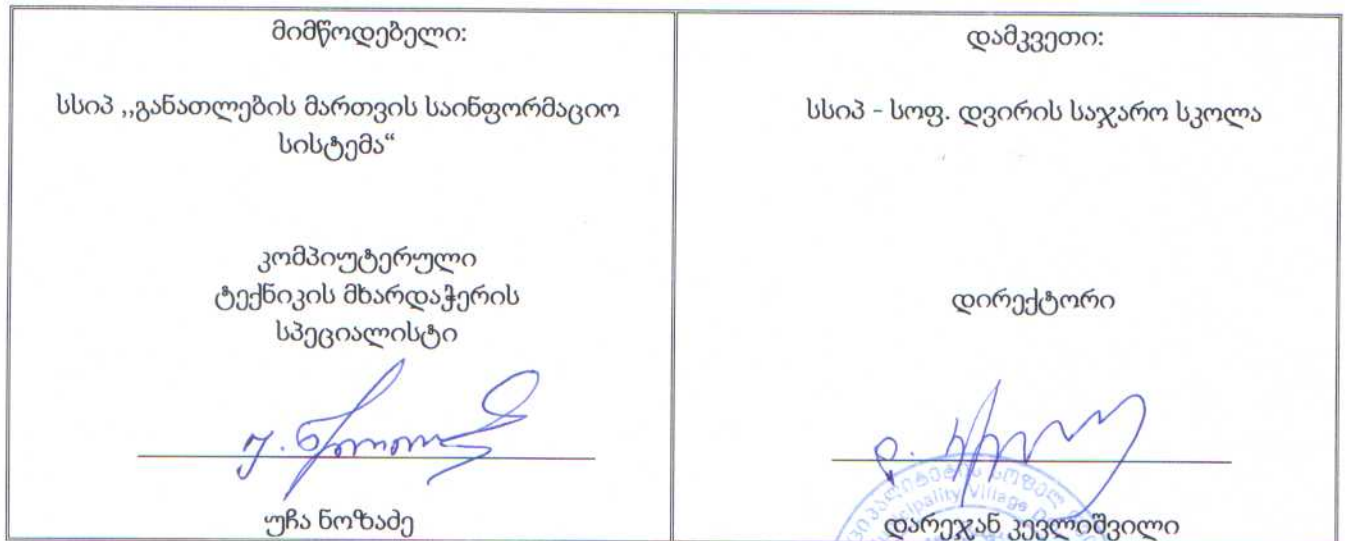 მიმწოდებელი:
სსიპ ,,განათლების მართვის საინფორმაციო
სისტემა“
კომპიუტერული
ტექნიკის მხარდაჭერის
სპეციალისტი
უჩა ნოზაძე
დამკვეთი:
სსიპ - სოფ. დვირის საჯარო სკოლა
დირექტორი
სოფელ
Village
დარეჯან კევლიშვილი